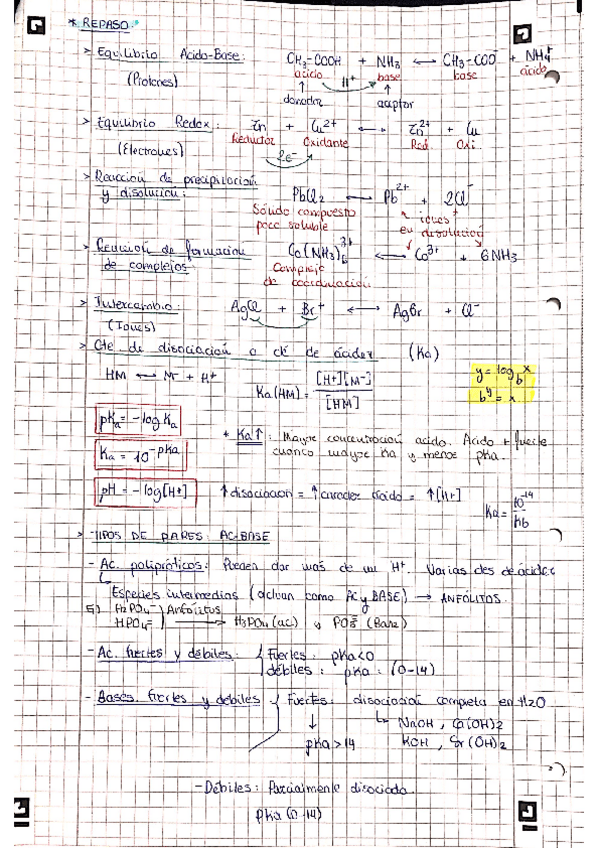 * REPASO:
> Equilibrio Acido-Base: CH3-COOH + NH3 ⟷ CH3-COO⁻ + NH4⁺
(Protones) acido H⁺ base base ácido
↑ donador ↑ aceptor
> Equilibrio Redox: Zn + Cu²⁺ ⟷ Zn²⁺ + Cu
(Electrones) Reductor Oxidante Red. Oxi.
2e⁻
> Reacción de precipitación
y disolución: PbCl2 ⟷ Pb²⁺ + 2Cl⁻
Sólido compuesto iones
poco soluble en disolución
> Reacción de formación Co(NH3)6³⁺ ⟷ Co³⁺ + 6NH3
de complejos: Complejo
de coordinación
> Intercambio: AgCl + Br⁻ ⟷ AgBr + Cl⁻
(Iones)
> Cte de disociación o cte de ácidez (Ka)
HM ⟷ M⁻ + H⁺ Ka(HM) = [H+][M-] / [HM]
y = log_b x
b^y = x
pKa = -log Ka
Ka = 10^-pKa
+ Ka↑: Mayor concentración acido. Acido + fuerte
cuanto mayor Ka y menor pKa.
pH = -log[H+] ↑disociacion = ↑caracter ácido = ↑[H+]
Ka = 10⁻¹⁴ / Kb
> TIPOS DE PARES AC-BASE
- Ac. polipróticos: Pueden dar más de un H⁺. Varias ctes de ácidez
Especies intermedias (actuan como AC y BASE) → ANFÓLITOS.
H2PO4⁻ } Anfólitos
HPO4⁼ → H3PO4 (ac) y PO4³⁻ (Base)
- Ac. fuertes y débiles: { Fuertes: pKa<0
débiles: pKa: (0-14)
- Bases fuertes y debiles { Fuertes: disociación completa en H2O
↓ ↳ NaOH, Ca(OH)2
pKa>14 KOH, Sr(OH)2
- Débiles: Parcialmente disociada.
pKa (0-14)